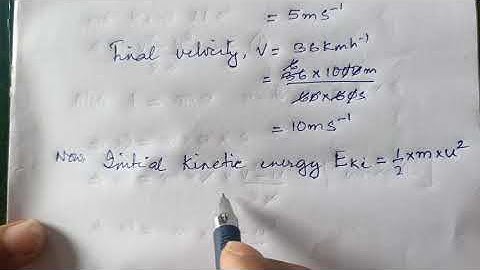 = 5ms⁻¹
Final velocity, V = 36kmh⁻¹
= 36 × 1000m
60×60s
= 10ms⁻¹
Now Initial kinetic energy Eki = 1/2 ×m×u²